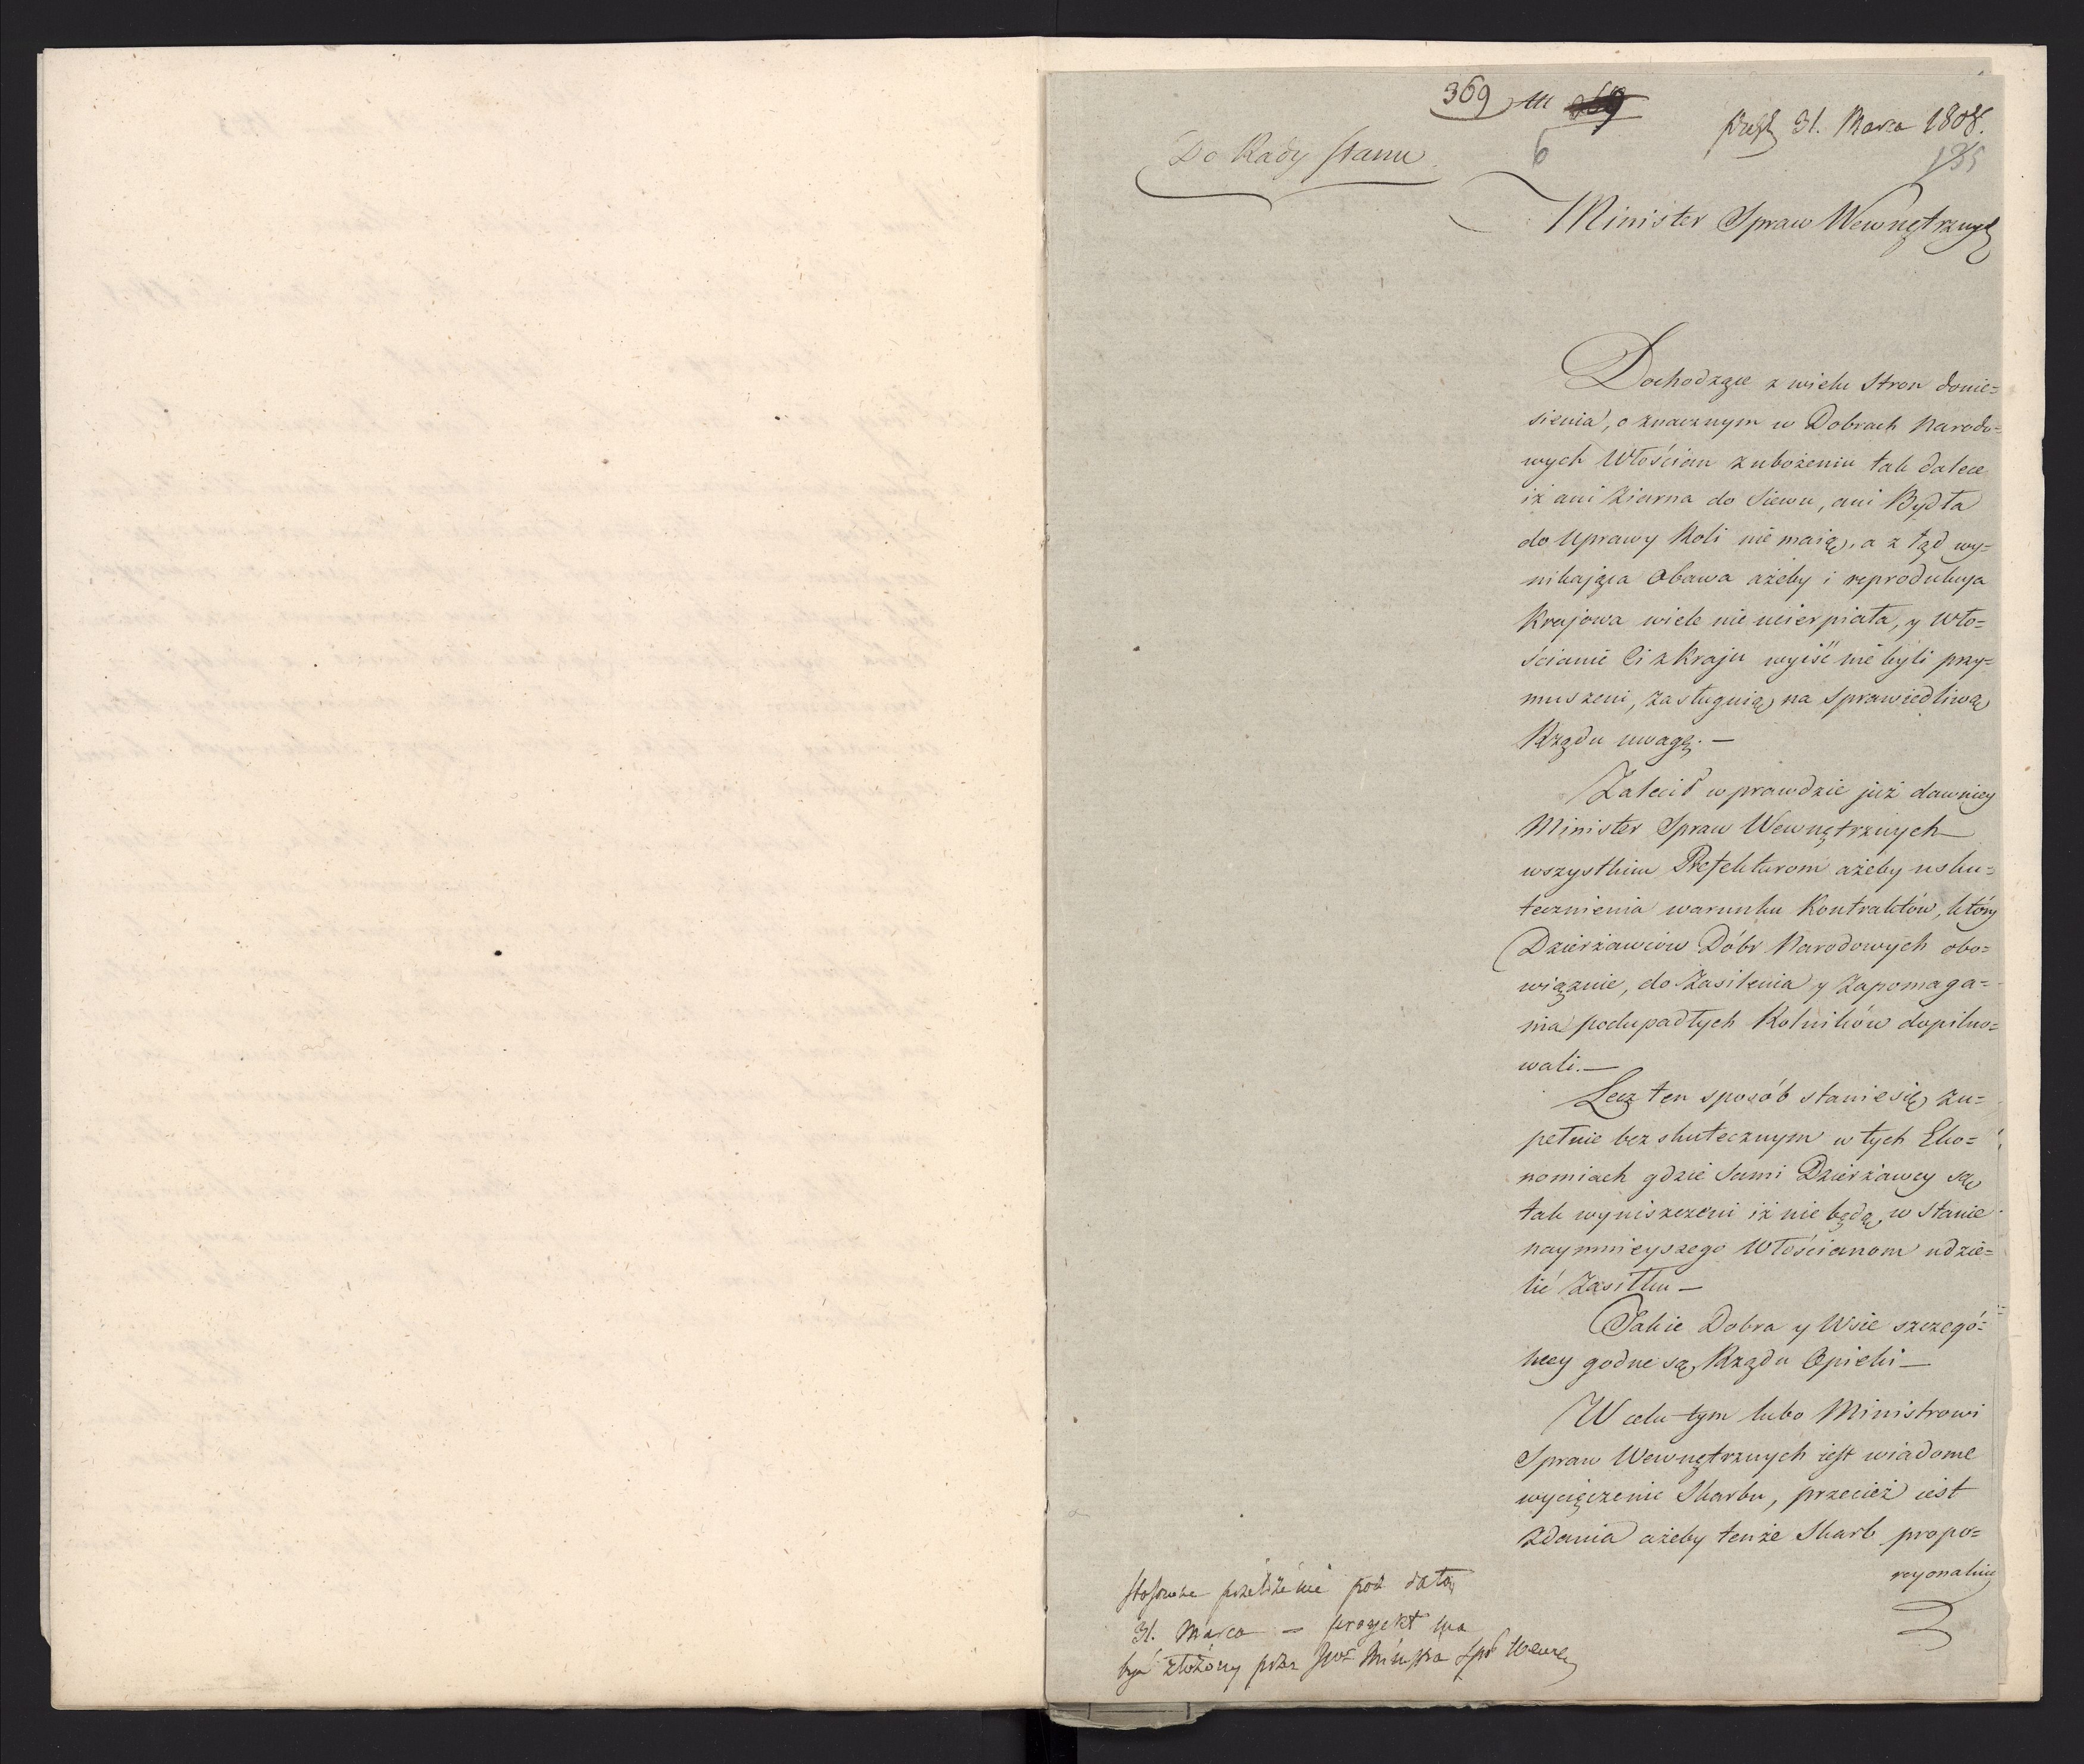 369 m
Do Rady stanu
6
31. Marca 1808.
Minister Spraw Wewnętrznych
Dochodzące z wielu Stron donie=
sienia, o znacznym w Dobrach Narodo=
wych Włościan zubożeniu tak dalece
iż ani Ziarna do Siewu, ani Bydła
do Uprawy Roli nie maią, a z tąd wy=
nikająca Obawa ażeby i reprodukcya
Krajowa wiele nie ucierpiała, y Wło=
ścianie Ci z Kraju wyiść nie byli przy=
muszeni, zasługuią na sprawiedliwą
Rządu uwagę. —
Zalecił wprawdzie już dawniey
Minister Spraw Wewnętrznych
wszystkim Prefekturom ażeby usku=
tecznienia warunku Kontraktów, który
Dzierżawców Dóbr Narodowych obo=
wiązuie, do Zasilenia y Zapomaga=
nia podupadłych Rolników dopilno=
wali. —
Lecz ten sposób stanie się zu=
pełnie bezskutecznym w tych Eko=
nomiach gdzie Sami Dzierżawcy są
tak wyniszczeni iż nie będą w Stanie
naymnieyszego Włościanom udzie=
lić Zasiłku —
Takie Dobra y Wsie szczegó=
lney godne są Rządu Opieki —
W celu tym lubo Ministrowi
Spraw Wewnętrznych iest wiadome
wycięczenie Skarbu, przecież iest
Zdania ażeby tenże Skarb propo=
rcyonalnie
Stosowne przełożenie pod datą
31. Marca — projekt ma
być złożony przez Min Spr Wewn